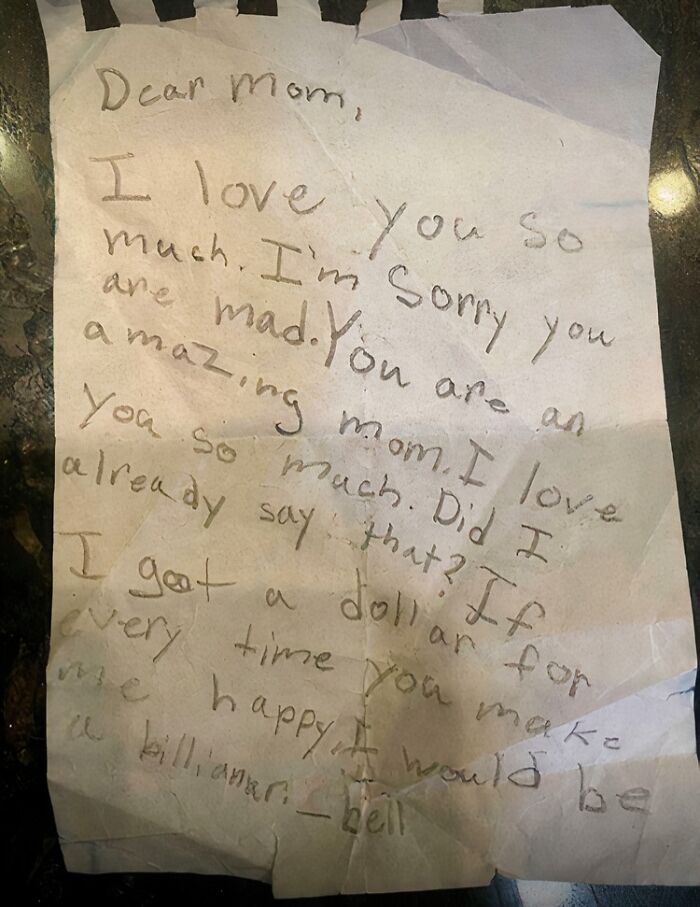 Dear Mom,
I love you so
much. I'm Sorry you
are mad. You are an
amazing mom. I love
you so much. Did I
already say that? If
I goot a dollar for
every time you make
me happy, I would be
a billianari. – bell